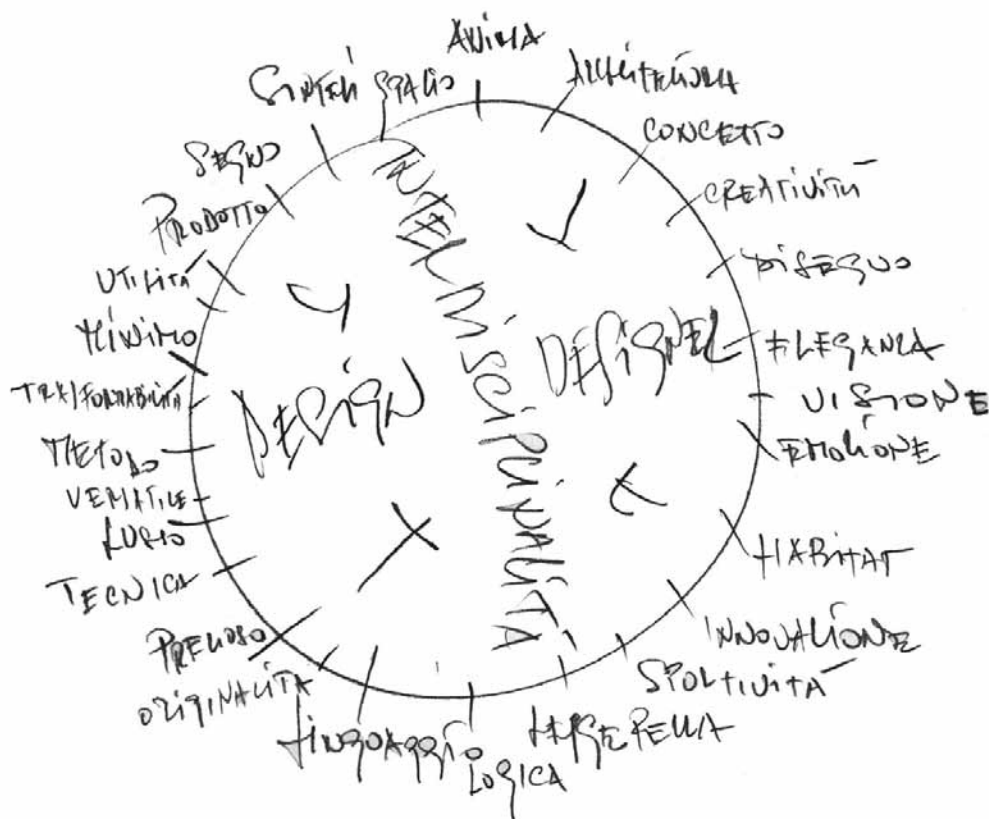 ANIMA
ARCHITETTURA
CONCETTO
CREATIVITÀ
DISEGNO
ELEGANZA
VISIONE
EMOZIONE
HABITAT
INNOVAZIONE
SPORTIVITÀ
LEGGEREZZA
LOGICA
LINGUAGGIO
ORIGINALITÀ
PREZIOSO
TECNICA
LUSSO
VERSATILE
METODO
TRASFORMABILITÀ
MINIMO
UTILITÀ
PRODOTTO
SEGNO
SINTESI
SPAZIO
DESIGN
INTERDISCIPLINALITÀ
DESIGNER